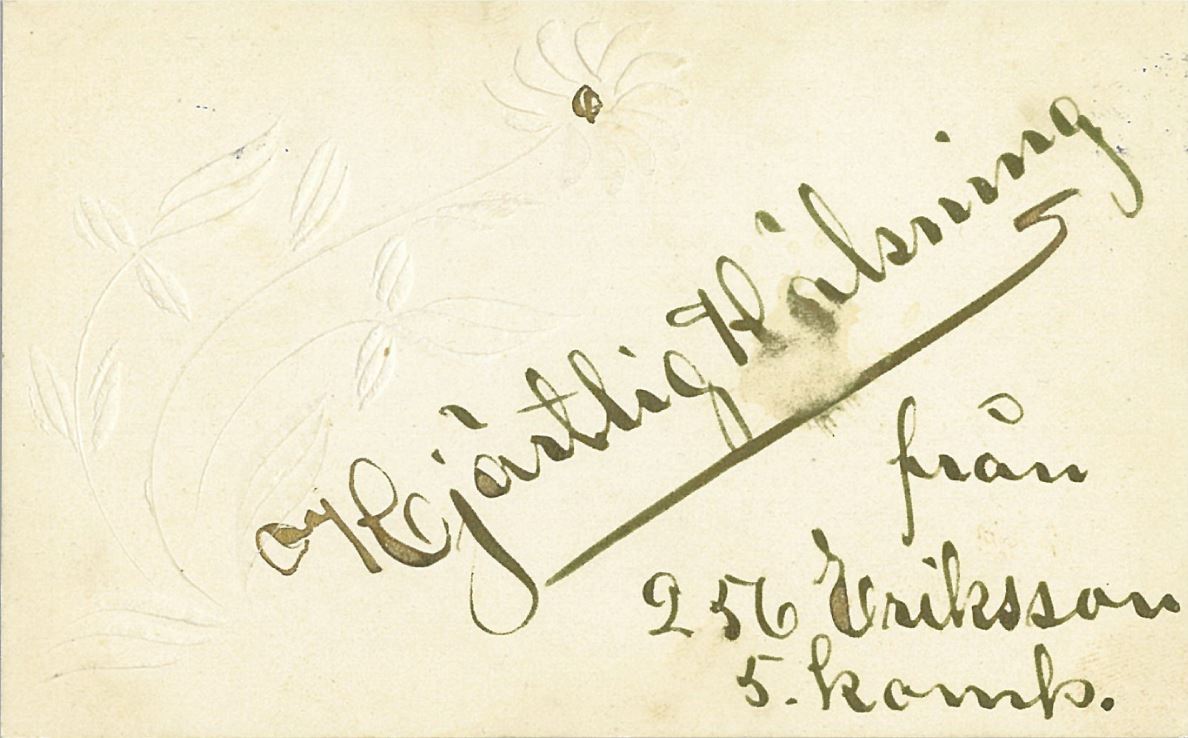 Hjärtlig Hälsning
från
256 Eriksson
5. komp.